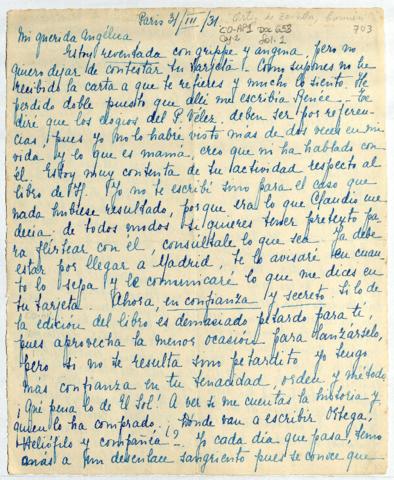 Paris 31/III/31.
Ortiz de Zárate, Carmen
CO-AP1 Doc 658
Caj-2 fol. 1
703
Mi querida Angélica
Estoy reventada con grippe y angina, pero no
quiero dejar de contestar tu tarjeta. Como supones no he
recibido la carta a que te refieres y mucho lo siento. He
perdido doble puesto que allí me escribía Renée. - Te
diré que los elogios del P. Vélez, deben ser por referen-
cias, pues yo no lo habré visto más de dos veces en mi
vida y lo que es mamá, creo que ni ha hablado con
él. Estoy muy contenta de tu actividad respecto al
libro de Yo no te escribí sino para el caso que
nada hubiese resultado, porque era lo que Claudio me
decía. de todos modos si quieres tener pretexto pa
ra flirtear con él, consúltale lo que sea. Ya debe
estar por llegar a Madrid, te lo avisaré en cuan
to lo sepa y le comunicaré lo que me dices en
tu tarjeta. Ahora, en confianza y secreto. Si lo de
la edición del libro es demasiado petardo para ti,
pues aprovecha la menor ocasión para lanzárselo,
pero si no te resulta sino petardito yo tengo
más confianza en tu tenacidad, orden y método
¡Qué pena lo de El Sol! A ver si me cuentas la historia y
quien lo ha comprado. Dónde van a escribir Ortega,
Heliófilo y compañía? Yo cada día que pasa, temo
más a un desenlace sangriento pues se conoce que